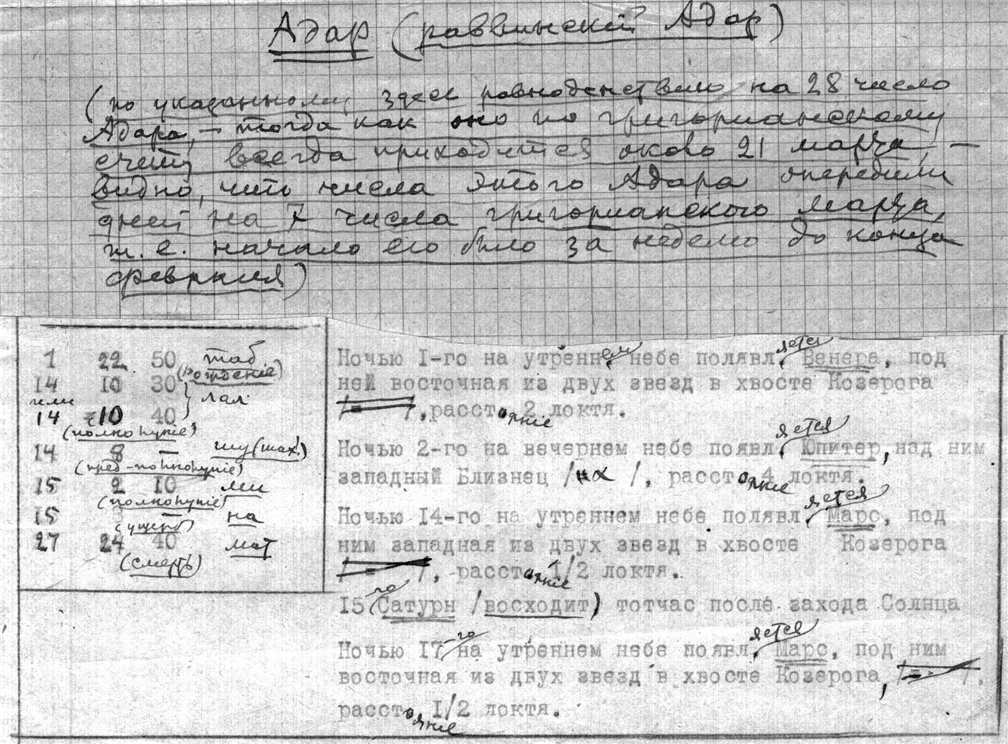 Адар (раввинский Адар)
(по указанному здесь равноденствию на 28 число
Адара, – тогда как оно по григорианскому
счету всегда приходится около 21 марта, –
видно, что числа этого Адара опередили
дней на 7 числа григорианского марта,
т.е. начало его было за неделю до конца
февраля)
1 22 50 таб
(рождение)
14 10 30 } лал
или
14 10 40
(полнолуние)
14 8 – шу (мах.)
(пред-полнолуние)
15 2 10 ми
(полнолуние)
15 3 – на
(ущерб)
27 24 40 мат
(смерть)
Ночью I-го на утреннем небе полявляется Венера, под
ней восточная из двух звезд в хвосте Козерога
/ – /, расстояние 2 локтя.
Ночью 2-го на вечернем небе появляется Юпитер, над ним
западный Близнец /их /, расстояние 4 локтя.
Ночью I4-го на утреннем небе полявляется Марс, под
ним западная из двух звезд в хвосте Козерога
/ – /, расстояние I/2 локтя.
I5-го (Сатурн /восходит) тотчас после захода Солнца
Ночью I7-го на утреннем небе появляется Марс, под ним
восточная из двух звезд в хвосте Козерога, / – /,
расстояние I/2 локтя.